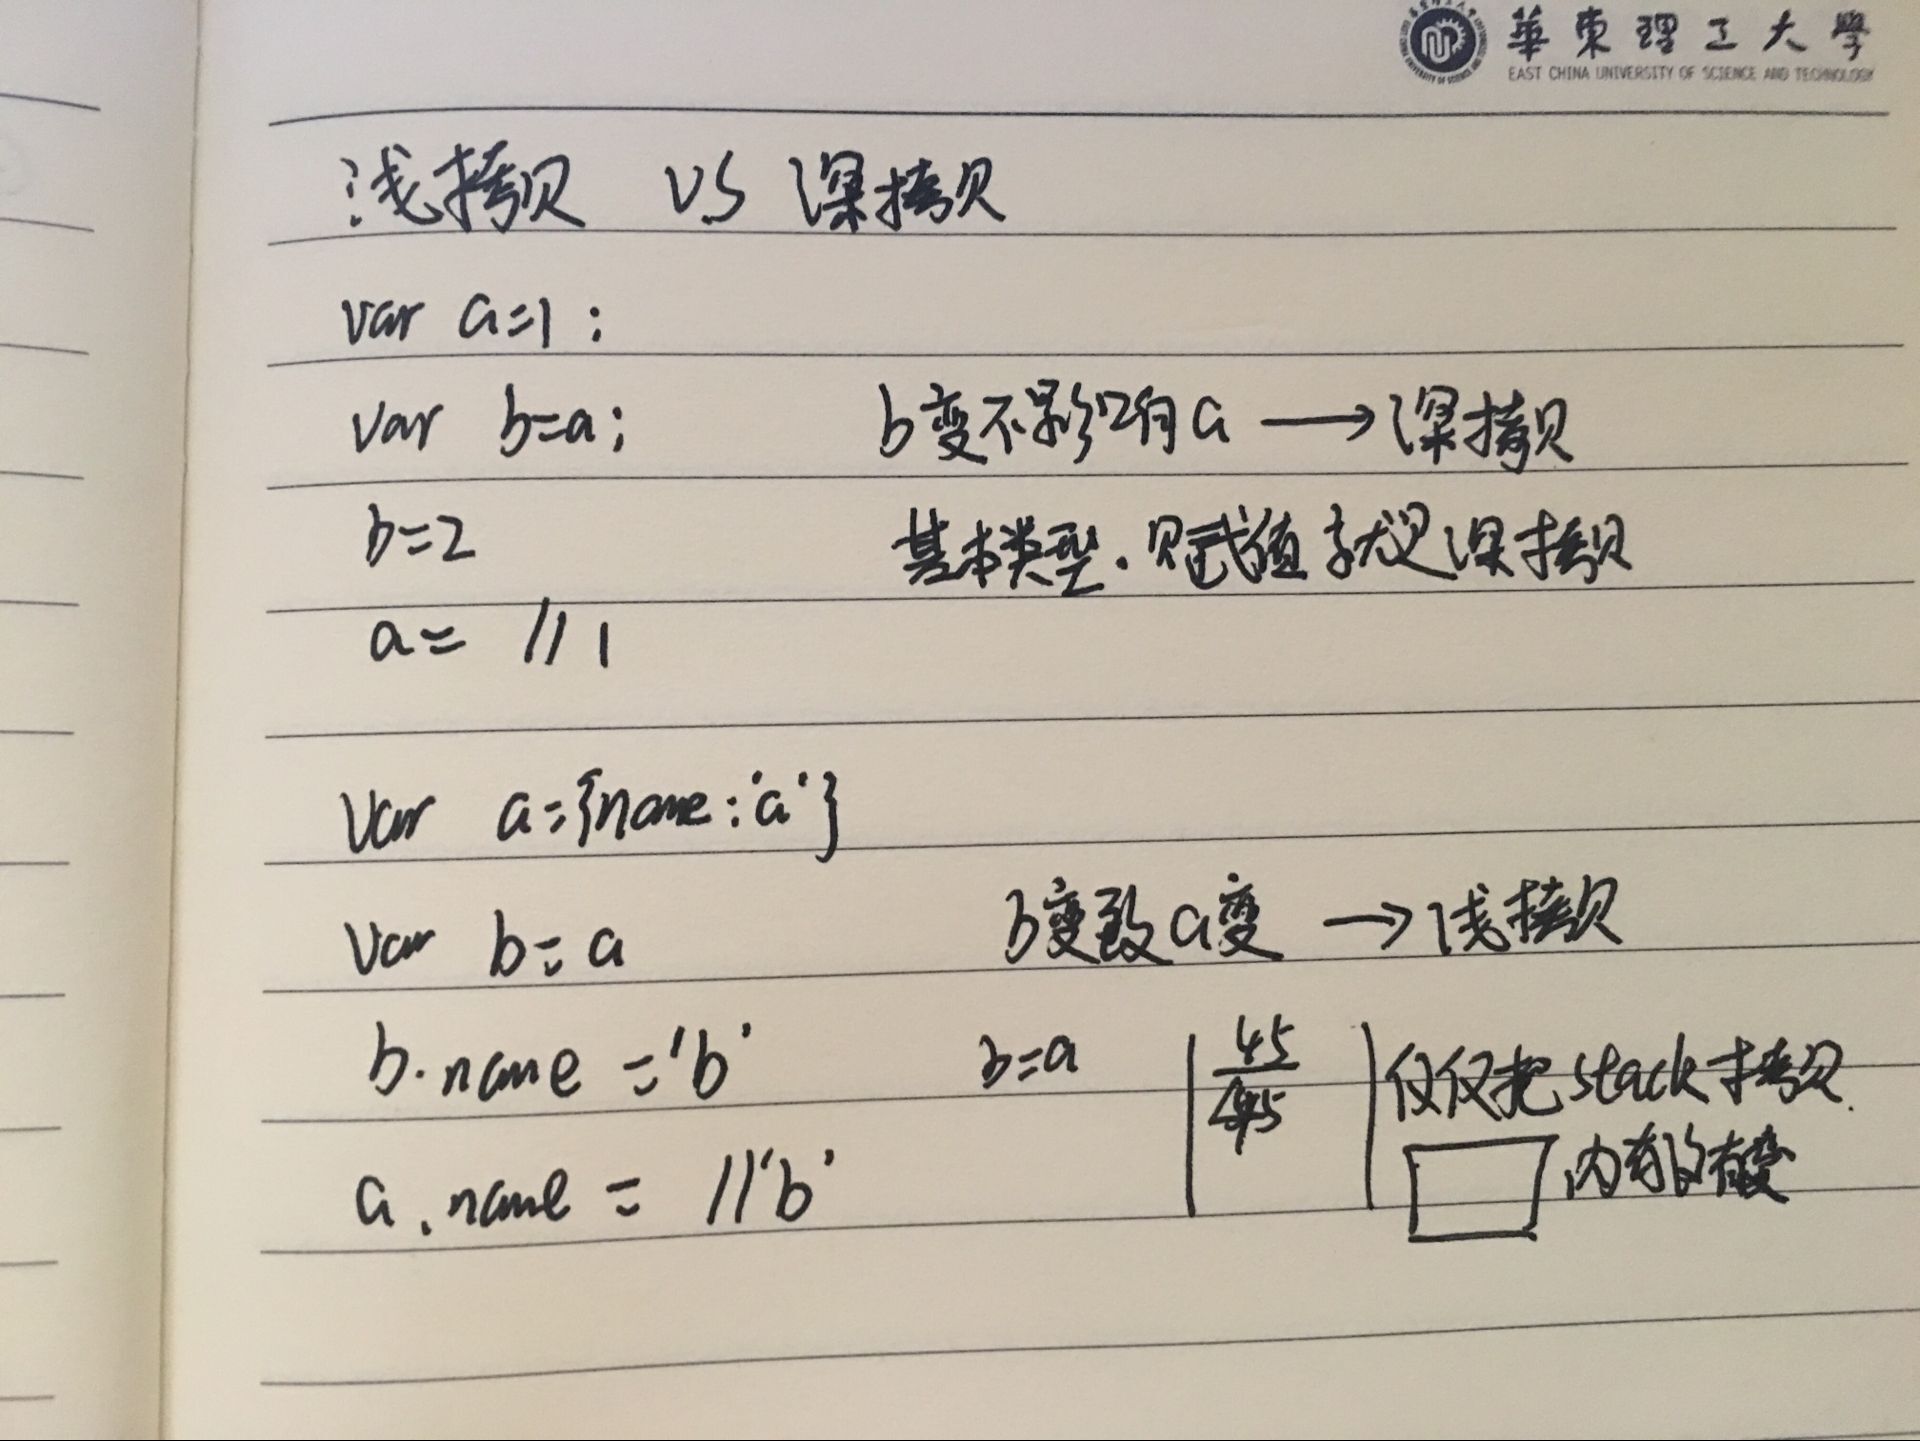 華東理工大學
EAST CHINA UNIVERSITY OF SCIENCE AND TECHNOLOGY
浅拷贝 VS 深拷贝
var a=1;
var b=a; b变不影响a → 深拷贝
b=2 基本类型.赋值就是深拷贝
a= //1
var a={name:'a'}
var b=a b变致a变 → 浅拷贝
b.name='b' b=a 45 仅仅把stack拷贝.
45
a.name= //'b' 内有的有变